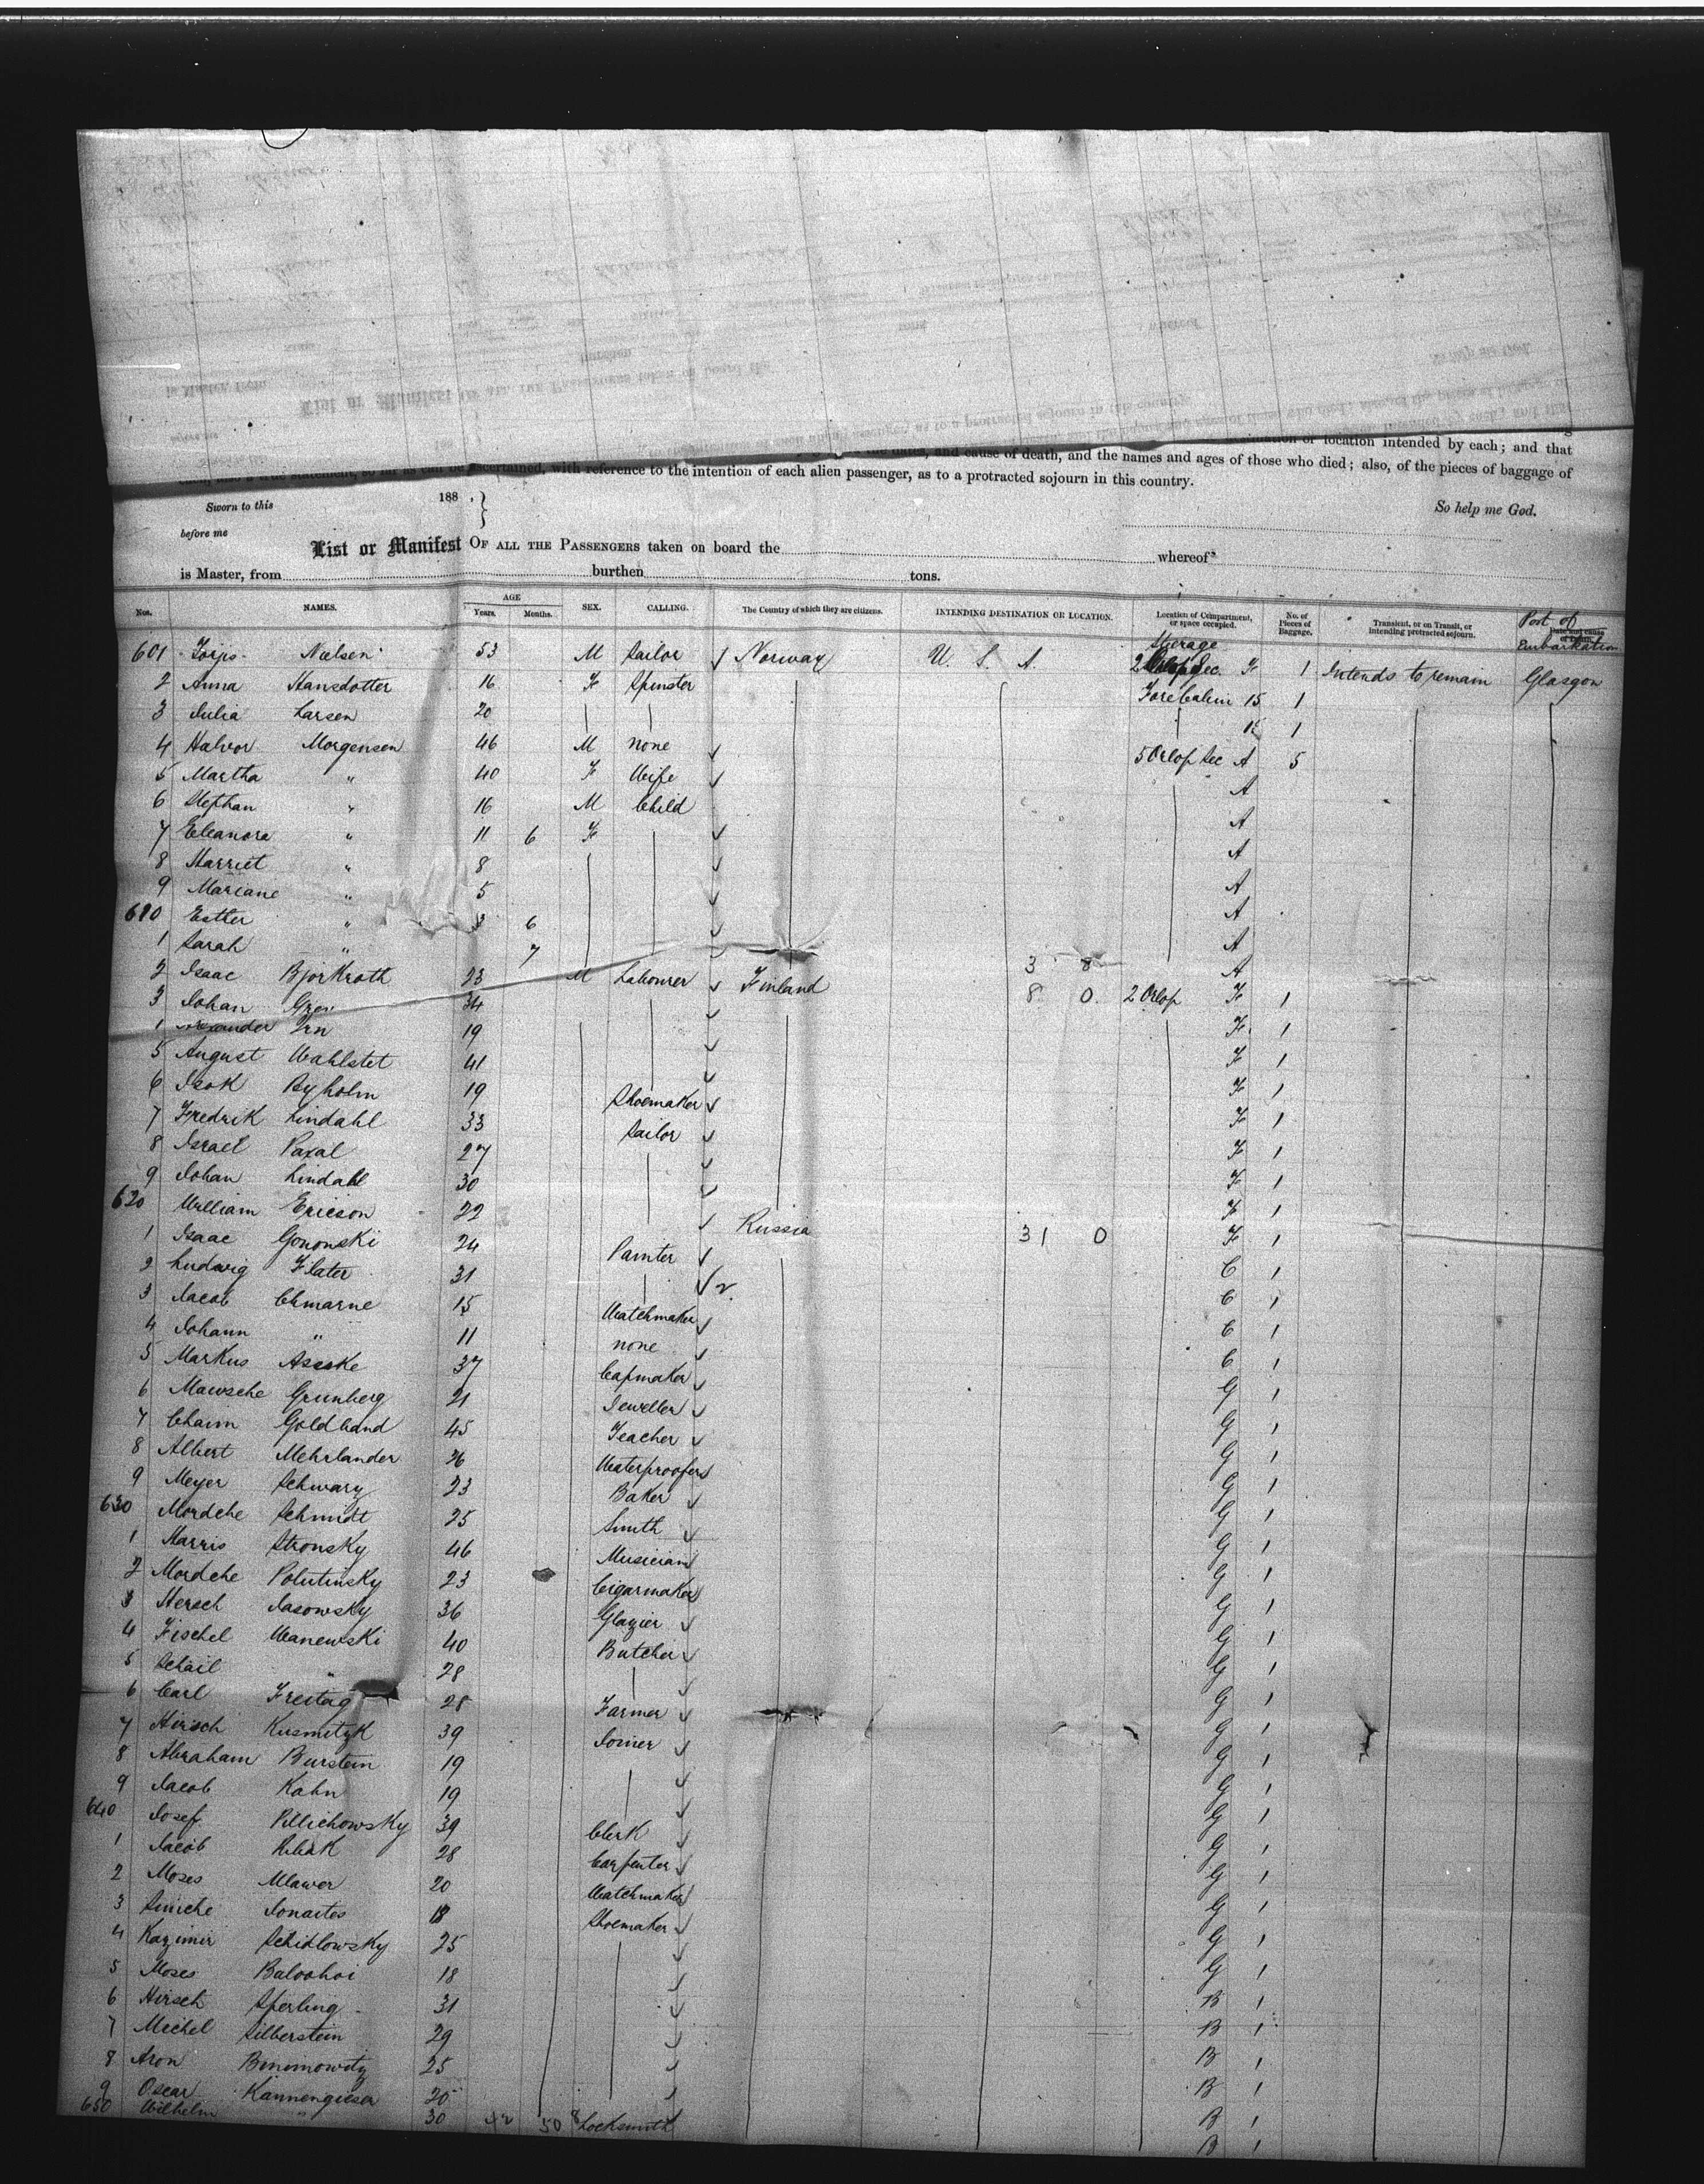 location intended by each; and that
and cause of death, and the names and ages of those who died; also, of the pieces of baggage of
ascertained, with reference to the intention of each alien passenger, as to a protracted sojourn in this country.
So help me God.
Sworn to this 188 . }
before me
List or Manifest OF ALL THE PASSENGERS taken on board the whereof
is Master, from burthen tons.
Nos. NAMES. AGE Years. Months. SEX. CALLING. The Country of which they are citizens. INTENDING DESTINATION OR LOCATION. Location of Compartment, or space occupied. No. of Pieces of Baggage. Transient, or on Transit, or intending protracted sojourn. Port of Embarkation
Steerage
601 Nielsen 53 M Sailor Norway U. S. A. 2 Orlop Sec. F 1 Intends to remain Glasgow
2 Anna Hansdotter 16 F Spinster Fore Cabin 15 1
3 Julia Larsen 20 15 1
4 Halvor Morgensen 46 M none 5 Orlop Sec A 5
5 Martha " 40 F Wife A
6 Stephan " 16 M Child A
7 Eleanora " 11 6 F A
8 Harriet " 8 A
9 Mariane " 5 A
610 Esther " 3 6 A
1 Sarah " 7 3 8 A
2 Isaac Bjorkroth 23 M Labourer Finland 8 0 2 Orlop F 1
3 Johan 34 F 1
19 F 1
5 August Wahlstet 41 F 1
6 Isak Byholm 19 Shoemaker F 1
7 Fredrik Lindahl 33 Sailor F 1
8 Israel Paxal 27 F 1
9 Johan Lindahl 30 F 1
620 William Ericson 22 Russia 31 0 F 1
1 Isaac Gononski 24 Painter C 1
2 Ludwig Flater 31 C 1
3 Jacob Chmarne 15 Watchmaker C 1
4 Johann " 11 none C 1
5 Markus 37 Capmaker G 1
6 Mawsche Grunberg 21 Jeweller G 1
7 Chaim Goldband 45 Teacher G 1
8 Albert Mehrlander Waterproofer G 1
9 Meyer Schwarz 23 Baker G 1
630 Mordche Schmidt 25 Smith G 1
1 Harris Stronsky 46 Musician G 1
2 Mordche Polutinsky 23 Cigarmaker G 1
3 Hersch Sasowsky 36 Glazier G 1
4 Fischel Wanewski 40 Butcher G 1
5 Schail " 28 G 1
6 Carl Freitag 28 Farmer G 1
7 Hirsch Kusmityk 39 Joiner G 1
8 Abraham Burstein 19 G 1
9 Jacob Kahn 19 G 1
640 Josef 39 Clerk G 1
1 Jacob Ribak 28 Carpenter G 1
2 Moses Mlawer 20 Watchmaker G 1
3 Simche Jonaites 18 Shoemaker G 1
4 Kazimir Schidlowsky 25 G 1
5 Moses Baloohoi 18 B 1
6 Hirsch Sperling 31 B 1
7 Mechel Silberstein 29 B 1
8 Aron 25 B 1
9 Oscar Kannengieser 20 B 1
650 Wilhelm " 30 42 50 8 Locksmith B 1